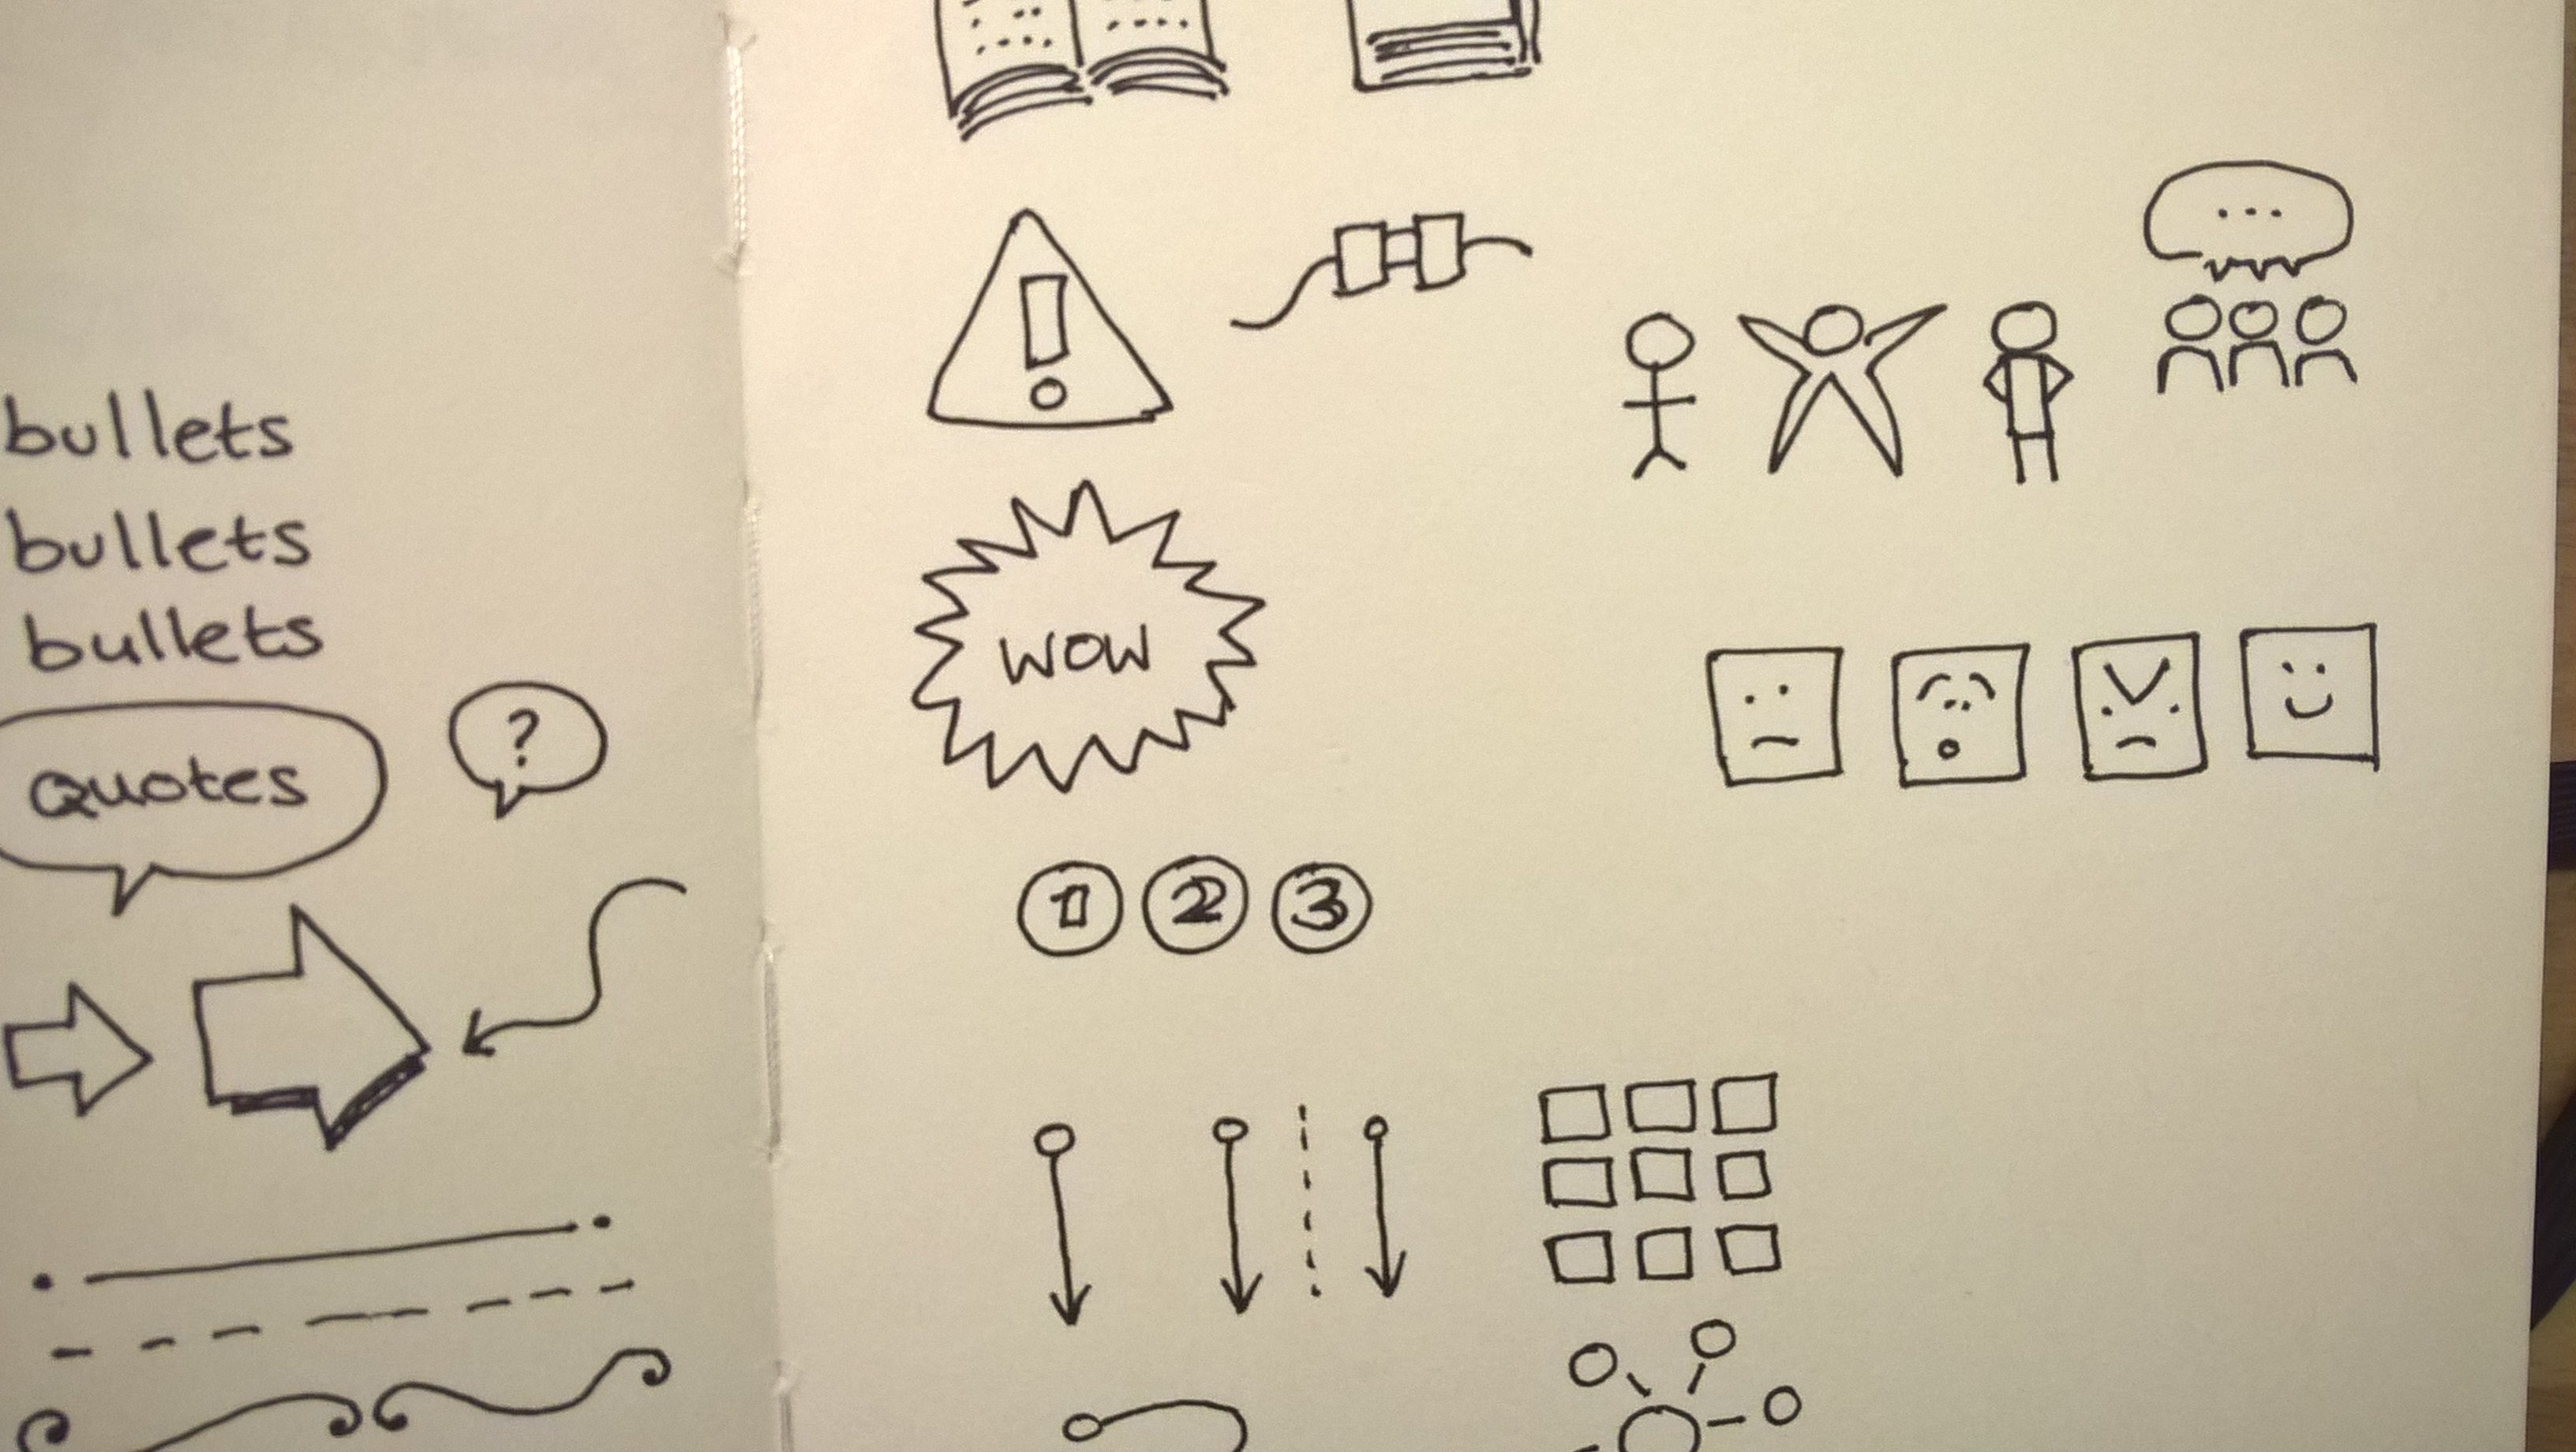 bullets
bullets
bullets
quotes
?
!
...
WOW
1 2 3